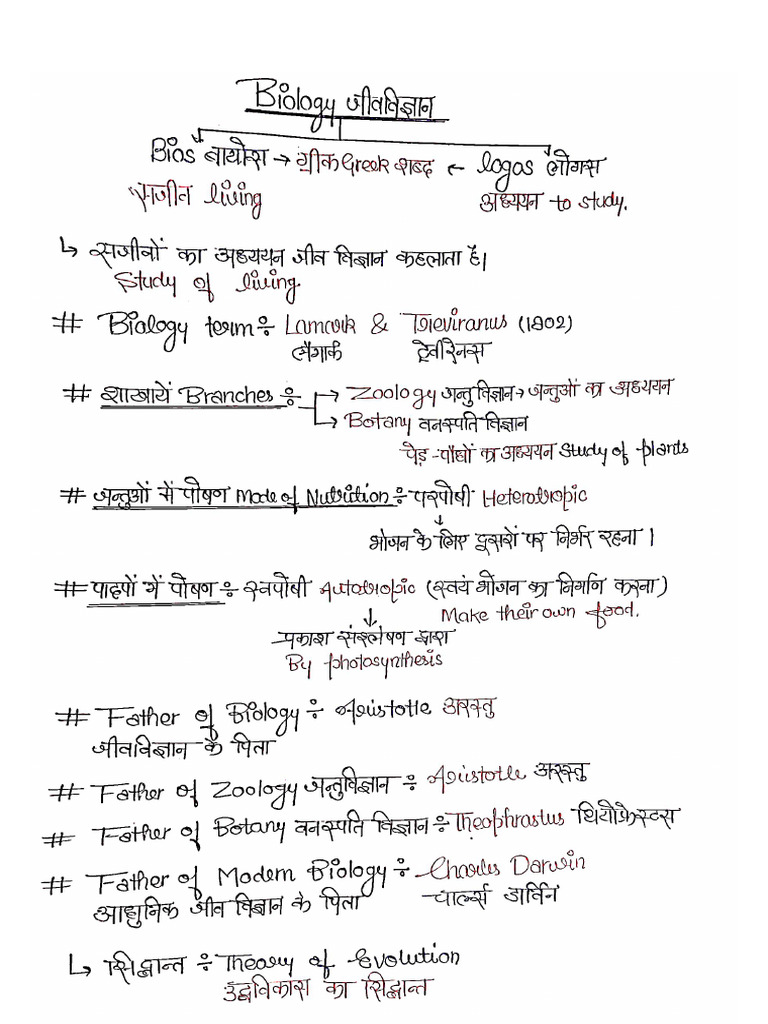 Biology जीवविज्ञान
Bios बायोस → ग्रीक Greek शब्द ← logos लोगस
सजीव living अध्ययन to study.
↳ सजीवों का अध्ययन जीव विज्ञान कहलाता है।
Study of living
# Biology term ÷ Lamark & Treviranus (1802)
लैमार्क ट्रेवीरेनस
# शाखायें Branches ÷ → Zoology जन्तु विज्ञान → जन्तुओं का अध्ययन
→ Botany वनस्पति विज्ञान
पेड़-पौधों का अध्ययन Study of plants
# जन्तुओं में पोषण Mode of Nutrition ÷ परपोषी Heterotropic
↓
भोजन के लिए दूसरों पर निर्भर रहना।
# पादपों में पोषण ÷ स्वपोषी Autotropic (स्वयं भोजन का निर्माण करना)
↓ Make their own food.
प्रकाश संश्लेषण द्वारा
By photosynthesis
# Father of Biology ÷ Aristotle अरस्तु
जीवविज्ञान के पिता
# Father of Zoology जन्तुविज्ञान ÷ Aristotle अरस्तु
# Father of Botany वनस्पति विज्ञान ÷ Theophrastus थियोफ्रेस्टस
# Father of Modern Biology ÷ Charles Darwin
आधुनिक जीव विज्ञान के पिता चार्ल्स डार्विन
↳ सिद्धान्त ÷ Theory of Evolution
उद्धविकास का सिद्धान्त